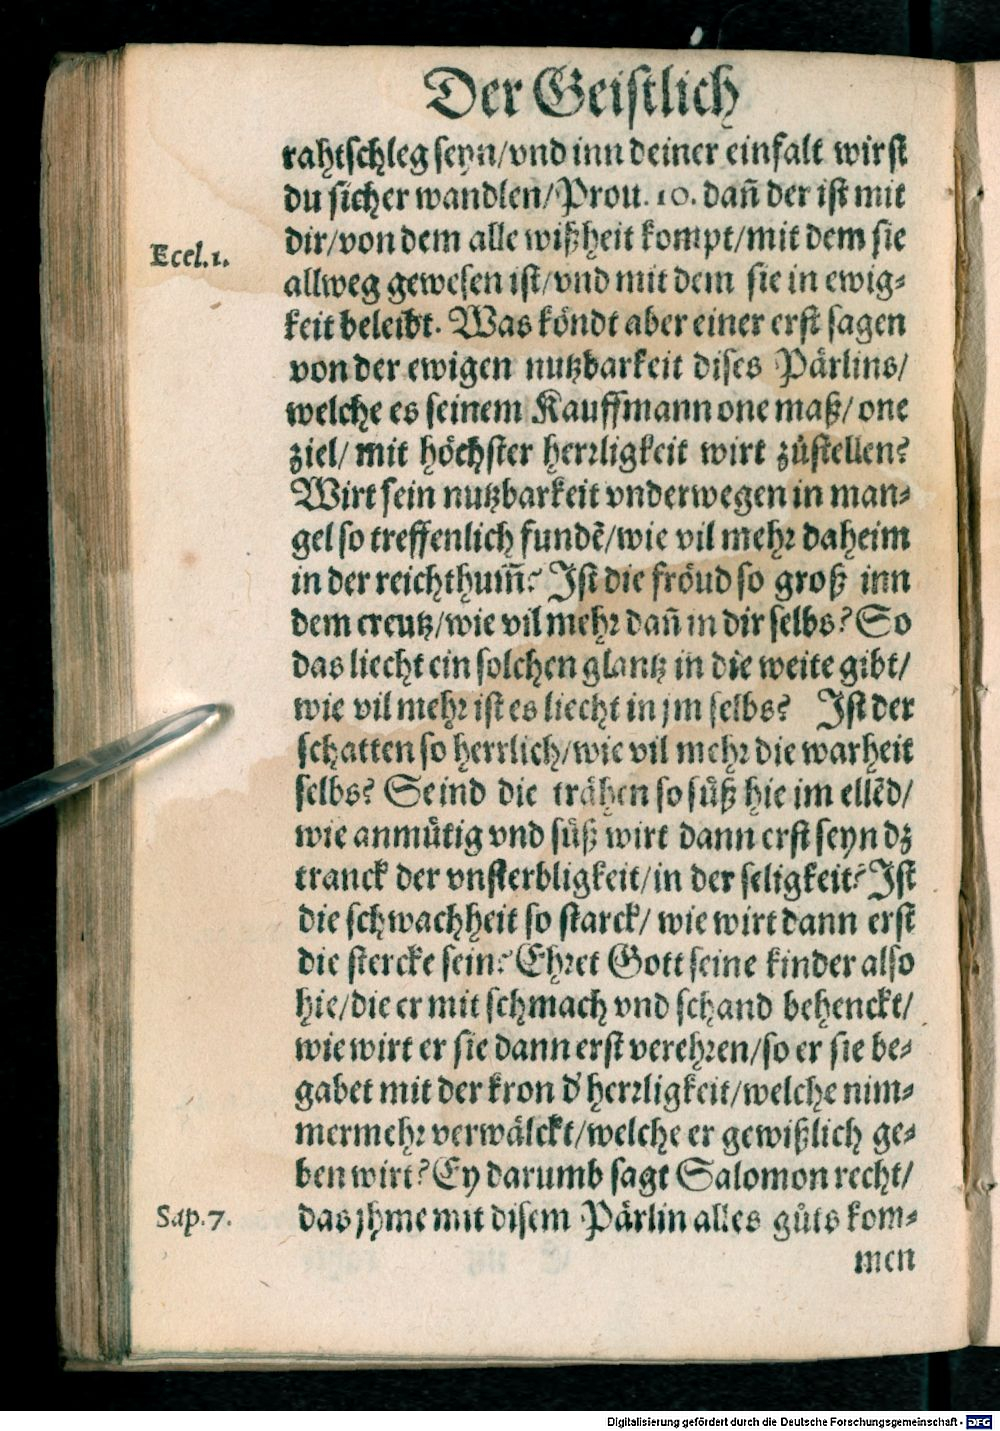 Der Geistlich
rahtschleg seyn/vnd inn deiner einfalt wirst
du sicher wandlen/Prou. 10. dañ der ist mit
dir/von dem alle wißheit kompt/mit dem sie
Eccl.1.
allweg gewesen ist/vnd mit dem sie in ewig-
keit beleibt. Was köndt aber einer erst sagen
von der ewigen nutzbarkeit dises Pärlins/
welche es seinem Kauffmann one maß/ one
ziel/ mit höchster herrligkeit wirt zůstellen?
Wirt sein nutzbarkeit vnderwegen in man-
gel so treffenlich fundẽ/wie vil mehr daheim
in der reichthum̃? Ist die fröud so groß inn
dem creutz/wie vil mehr dañ in dir selbs? So
das liecht ein solchen glantz in die weite gibt/
wie vil mehr ist es liecht in jm selbs? Ist der
schatten so herrlich/wie vil mehr die warheit
selbs? Seind die trähen so süß hie im ellẽd/
wie anmütig vnd süß wirt dann erst seyn dz
tranck der vnsterbligkeit/in der seligkeit? Ist
die schwachheit so starck/ wie wirt dann erst
die stercke sein? Ehret Gott seine kinder also
hie/die er mit schmach vnd schand behenckt/
wie wirt er sie dann erst verehren/so er sie be-
gabet mit der kron d' herrligkeit/welche nim-
mermehr verwälckt/welche er gewißlich ge-
ben wirt? Ey darumb sagt Salomon recht/
Sap.7.
das jhme mit disem Pärlin alles gůts kom-
men
Digitalisierung gefördert durch die Deutsche Forschungsgemeinschaft - DFG